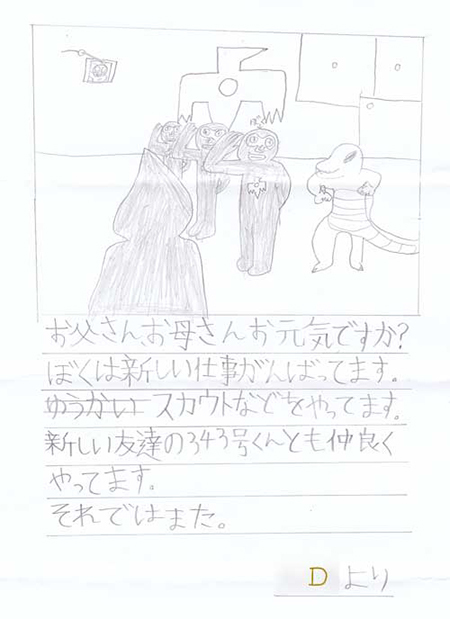 ぼく
お父さんお母さんお元気ですか?
ぼくは新しい仕事がんばってます。
ゆうかいースカウトなどをやってます。
新しい友達の343号くんとも仲良く
やってます。
それではまた。
Dより